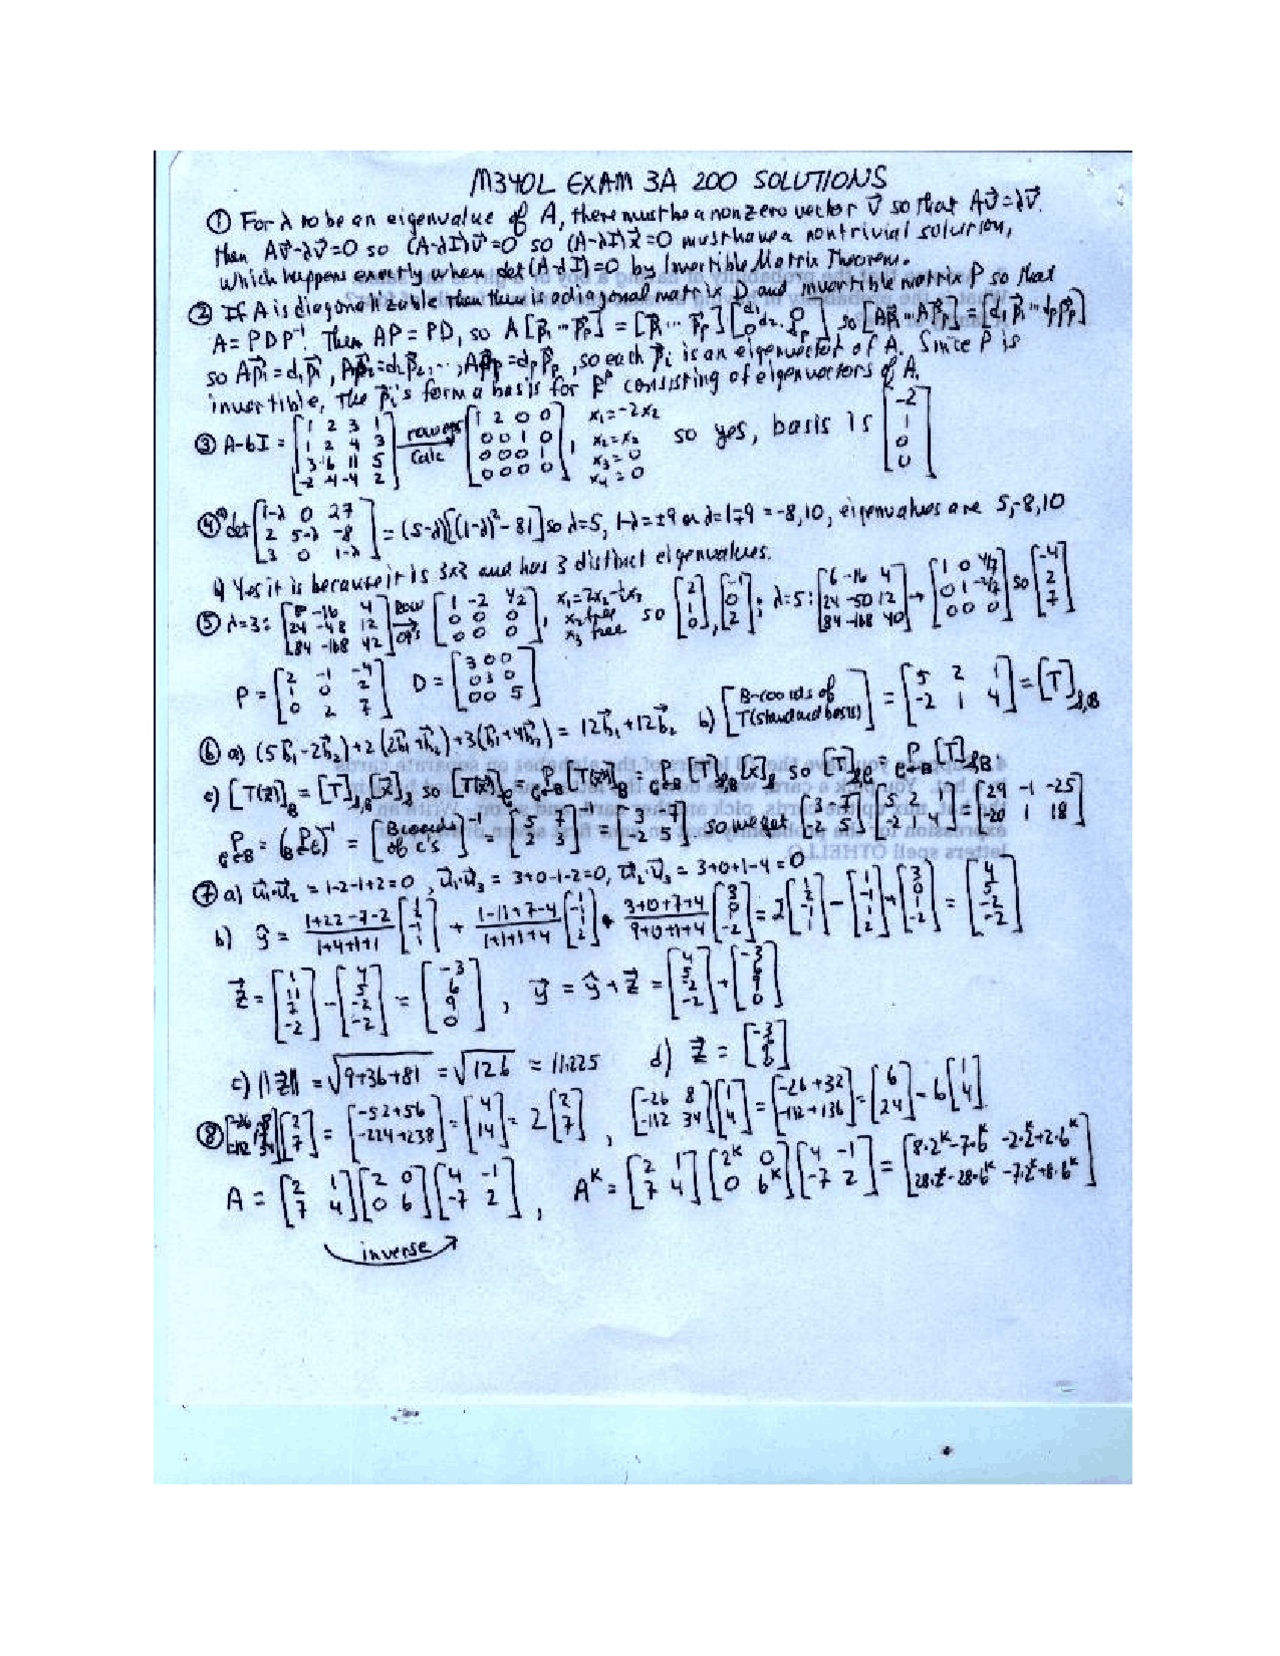 M340L EXAM 3A 200 SOLUTIONS
① For λ to be an eigenvalue of A, there must be a nonzero vector v⃗ so that Av⃗=λv⃗.
then Av⃗-λv⃗=0 so (A-λI)v⃗=0 so (A-λI)x⃗=0 must have a nontrivial solution,
which happens exactly when det(A-λI)=0 by Invertible Matrix Theorem.
② If A is diagonalizable then there is a diagonal matrix D and invertible matrix P so that
A=PDP⁻¹. Then AP=PD, so A[p⃗₁ ... p⃗p] = [p⃗₁ ... p⃗p][d₁ 0 d₂ . 0 dp] so [Ap⃗₁ ... Ap⃗p] = [d₁p⃗₁ ... dpp⃗p]
so Ap⃗₁=d₁p⃗₁, Ap⃗₂=d₂p⃗₂, ..., Ap⃗p=dpp⃗p, so each p⃗i is an eigenvector of A. Since P is
invertible, the p⃗i's form a basis for consisting of eigenvectors of A.
③ A-6I = [1 2 3 1; 1 2 4 3; 3 6 11 5; -2 -4 -4 2] row ops calc → [1 2 0 0; 0 0 1 0; 0 0 0 1; 0 0 0 0], x₁=-2x₂ x₂=x₂ x₃=0 x₄=0 so yes, basis is [-2; 1; 0; 0]
④ a) det [1-λ 0 27; 2 5-λ -8; 3 0 1-λ] = (5-λ)[(1-λ)²-81] so λ=5, 1-λ=±9 or λ=1∓9 = -8,10, eigenvalues are 5,-8,10
b) Yes it is because it is 3x3 and has 3 distinct eigenvalues.
⑤ λ=3: [8 -16 4; 24 -48 12; 84 -168 42] Row op's → [1 -2 1/2; 0 0 0; 0 0 0], x₁=2x₂-½x₃ x₂ free x₃ free so [2; 1; 0], [-1; 0; 2]; λ=5: [6 -16 4; 24 -50 12; 84 -168 40] → [1 0 4/7; 0 1 -2/7; 0 0 0] so [-4; 2; 7]
P = [2 -1 -4; 1 0 2; 0 2 7] D = [3 0 0; 0 3 0; 0 0 5]
⑥ a) (5b⃗₁-2b⃗₂)+2(2b⃗₁+b⃗₂)+3(b⃗₁+4b⃗₂) = 12b⃗₁+12b⃗₂ b) [B-coords of T(standard basis)] = [5 2 1; -2 1 4] = [T]
c) [T(x⃗)]B = [T] [x⃗] so [T(x⃗)]C = P C←B [T(x⃗)]B = P C←B [T] [x] so [T] = P C←B [T]
P C←B = (P B←C)⁻¹ = [B coords of C's]⁻¹ = [5 7; 2 3]⁻¹ = [3 -7; -2 5]. so we get [3 -7; -2 5][5 2 1; -2 1 4] = [29 -1 -25; -20 1 18]
⑦ a) u⃗₁·u⃗₂ = 1-2-1+2=0, u⃗₁·u⃗₃ = 3+0-1-2=0, u⃗₂·u⃗₃ = 3+0+1-4=0
b) ŷ = (1+22-7-2)/(1+4+1+1) [1; 2; -1; 1] + (1-11+7-4)/(1+1+1+4) [1; -1; 1; 2] + (3+0+7+4)/(9+0+1+4) [3; 0; 1; -2] = 2[1; 2; -1; 1] - [1; -1; 1; 2] + [3; 0; 1; -2] = [4; 5; -2; -2]
z⃗ = [1; 11; 7; -2] - [4; 5; -2; -2] = [-3; 6; 9; 0], y⃗ = ŷ+z⃗ = [4; 5; -2; -2] + [-3; 6; 9; 0]
c) ||z⃗|| = √9+36+81 = √126 = 11.225 d) z⃗ = [-3; 6; 9; 0]
⑧ [-26 8; -112 34][2; 7] = [-52+56; -224+238] = [4; 14] = 2[2; 7], [-26 8; -112 34][1; 4] = [-26+32; -112+136] = [6; 24] = 6[1; 4]
A = [2 1; 7 4][2 0; 0 6][4 -1; -7 2], Aᴷ = [2 1; 7 4][2ᴷ 0; 0 6ᴷ][4 -1; -7 2] = [8·2ᴷ-7·6ᴷ -2·2ᴷ+2·6ᴷ; 28·2ᴷ-28·6ᴷ -7·2ᴷ+8·6ᴷ]
inverse